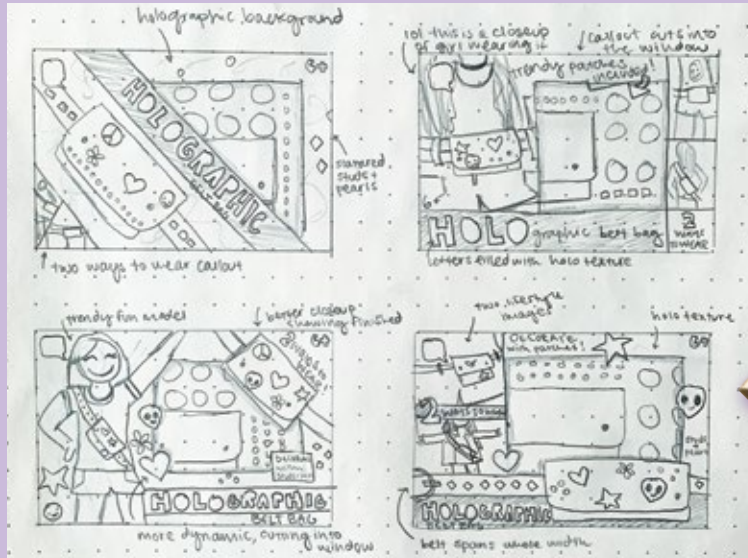 holographic background
HOLOGRAPHIC
BELT BAG
6+
scattered
studs +
pearls
two ways to wear callout
lol this is a closeup
of girl wearing it
callout cuts into
the window
trendy patches
included!
6+
HOLOgraphic belt bag
2
WAYS
TO WEAR
letters filled with holo texture
trendy fun model
better closeup
showing finished
6+
2 ways to
wear!
HOLOGRAPHIC
BELT BAG
more dynamic, cutting into
window
two lifestyle
images
holo texture
DECORATE
with patches!
6+
2 WAYS TO WEAR
studs
+
pearls
HOLOGRAPHIC
BELT BAG
belt spans whole width